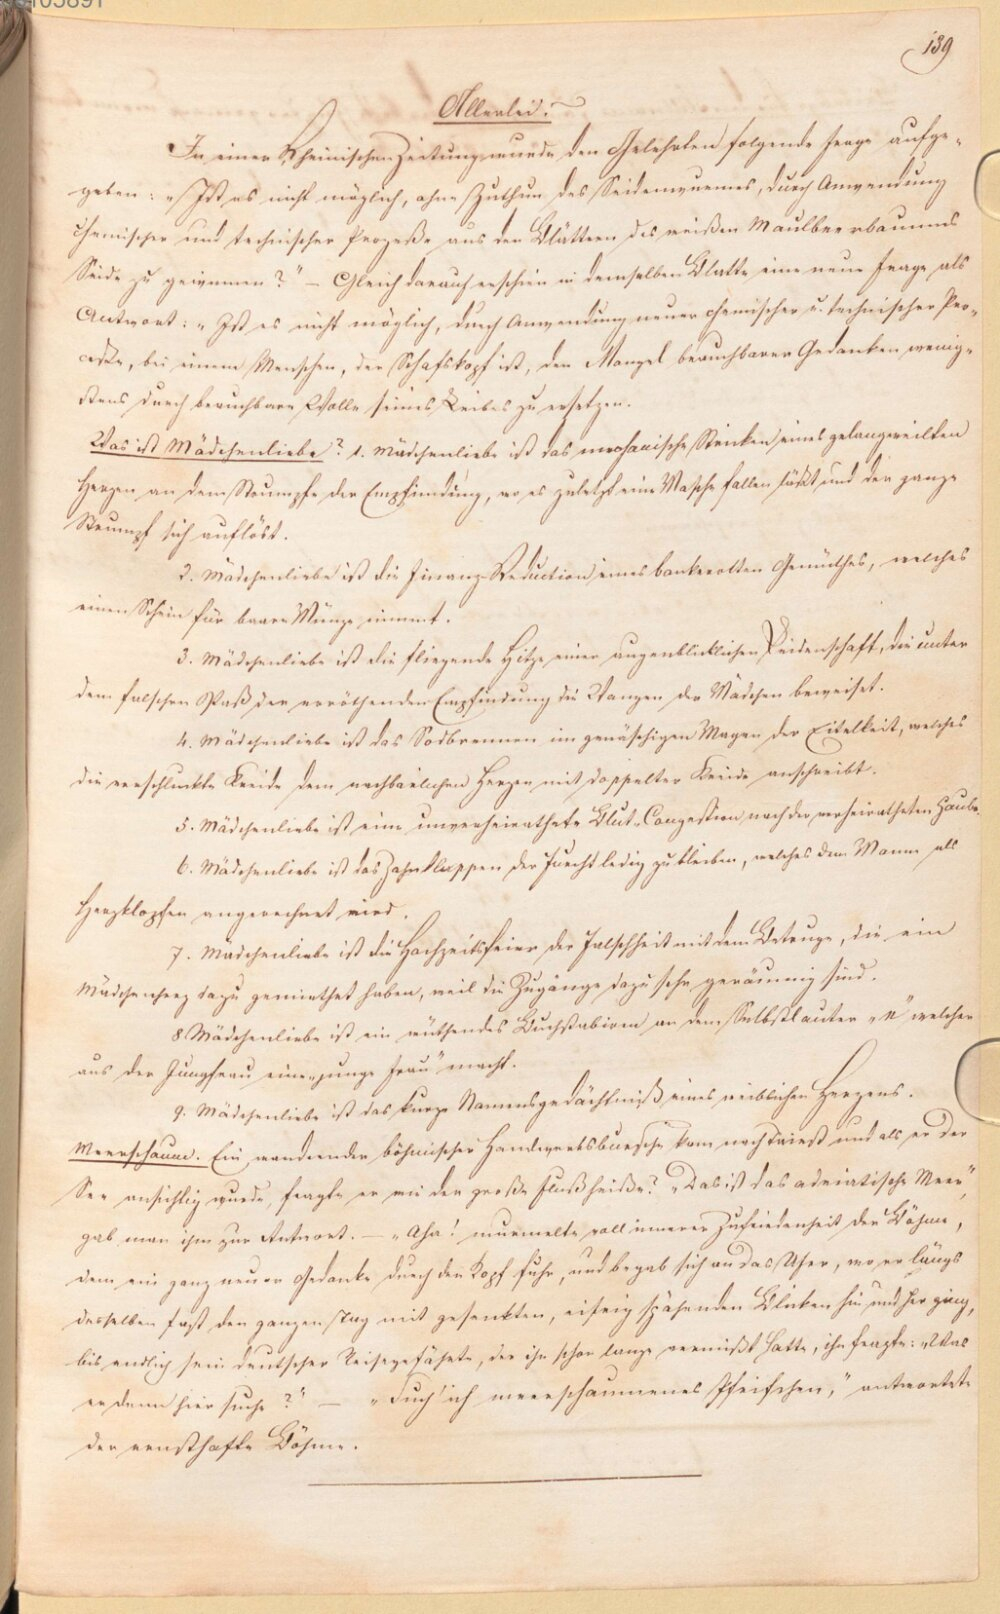 139
Allerlei.
In einer Rheinischen Zeitung wurde den Gelehrten folgende Frage aufge-
geben: „Ist es nicht möglich, ohne Zuthun des Seidenwurmes, durch Anwendung
chemischer und technischer Prozeße aus den Blättern des weißen Maulbeerbaumes
Seide zu gewinnen?" – Gleich darauf erschien in demselben Blatte eine neue Frage als
Antwort: „Ist es nicht möglich, durch Anwendung neuer chemischer u. technischer Pro-
ceße, bei einem Menschen, der Schafskopf ist, den Mangel brauchbarer Gedanken wenig-
stens durch brauchbare Wolle seines Leibes zu ersetzen.
Was ist Mädchenliebe? 1. Mädchenliebe ist das mechanische Stricken eines gelangweilten
Herzen an dem Strumpfe der Empfindung, wo es zuletzt eine Masche fallen läßt und der ganze
Strumpf sich auflöst.
2. Mädchenliebe ist die Finanz-Reduction eines bankerotten Gemüthes, welches
einen Schein für baare Münze nimmt.
3. Mädchenliebe ist die fliegende Hitze einer augenblicklichen Leidenschaft, die unter
dem falschen Paß der erröthenden Empfindung die Wangen der Mädchen bereiset.
4. Mädchenliebe ist das Sodbrennen im genäschigen Magen der Eitelkeit, welches
die verschluckte Kreide dem nachbarlichen Herzen mit doppelter Kreide anschreibt.
5. Mädchenliebe ist eine unverheirathete Blut-Congestion nach der verheiratheten Haube.
6. Mädchenliebe ist das Zahnklappen der Furcht ledig zu bleiben, welches dem Manne als
Herzklopfen angerechnet wird.
7. Mädchenliebe ist die Hochzeitsfeier der Falschheit mit dem Betruge, die ein
Mädchenherz dazu gemiethet haben, weil die Zugänge dazu sehr geräumig sind.
8 Mädchenliebe ist ein wüthendes Buchstabiren an dem Selbstlauter „e" welcher
aus der Jungfrau eine „junge Frau" macht.
9. Mädchenliebe ist das kurze Namensgedächtniß eines weiblichen Herzens.
Meerschaum. Ein wandernder böhmischer Handwerksbursche kam nach Triest und als er der
See ansichtig wurde, fragte er wie der große Fluß heiße? „Das ist das adriatische Meer",
gab man ihm zur Antwort. – „Aha! murmelte voll innerer Zufriedenheit der Böhme,
dem ein ganz neuer Gedanke durch den Kopf fuhr, und begab sich an das Ufer, wo er längs
desselben fast den ganzen Tag mit gesenkten, eifrig spähenden Blicken hin und her ging,
bis endlich sein deutscher Reisegefährte, der ihn schon lange vermißt hatte, ihn fragte: „Was
er denn hier suche?" – „Such' ich meerschaumenes Pfeifchen," antwortete
der ernsthafte Böhme.